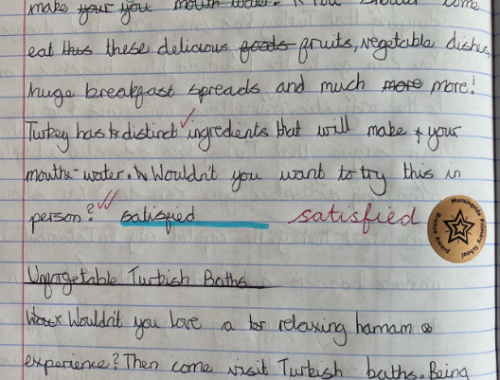 make your you mouth water. If you should come
eat this these delicious foods fruits, vegetable dishes,
huge breakfast spreads and much more more!
Turkey has distinct ingredients that will make your
mouth-water. Wouldn't you want to try this in
person? satisfied satisfied
Morningside Primary School
Writing Award
Unforgetable Turkish Baths
Wouldn't you love a relaxing hamam
experience? Then come visit Turkish baths. Being